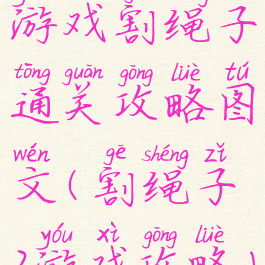 游戏割绳子
tōng guān gōng lüè tú
通关攻略图
wén gē shéng zǐ
文(割绳子
yóu xì gōng lüè
游戏攻略)